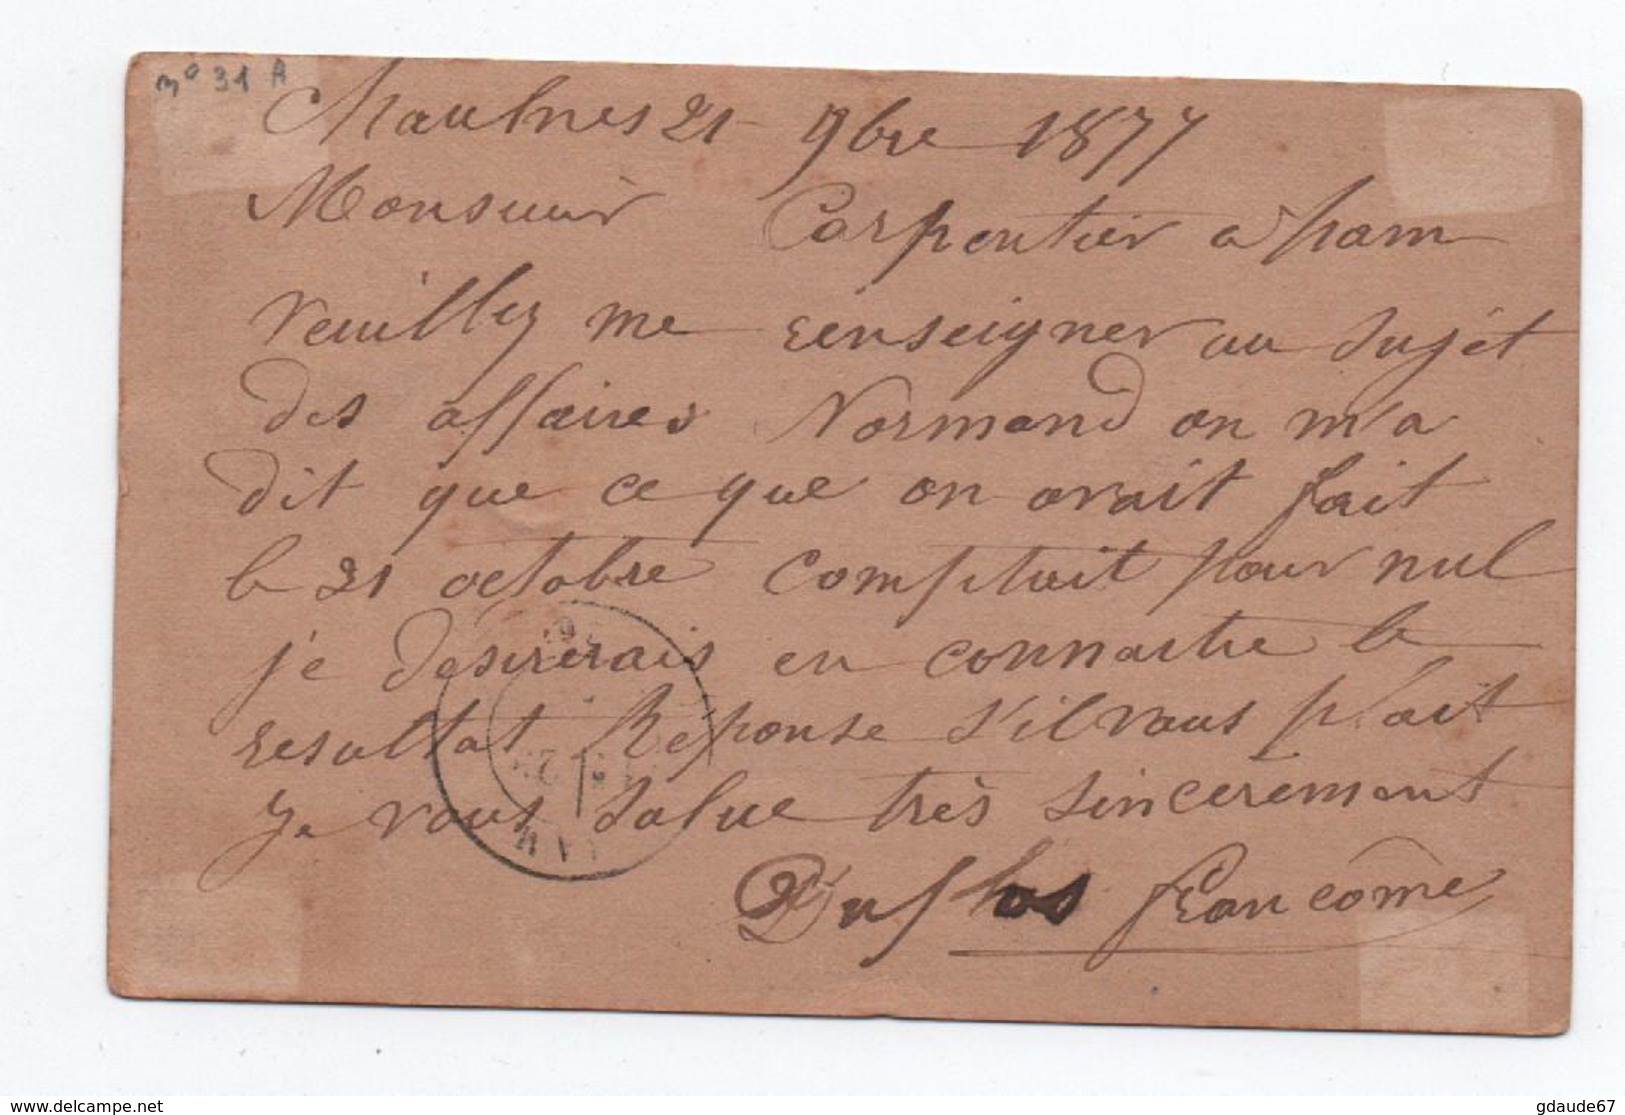 no 31 A
Chaulnes 21 9bre 1877
Monsieur Carpentier a ham
veuillez me renseigner au sujet
des affaires Normand on m'a
dit que ce que on avait fait
le 21 octobre comptait pour nul
je desirerais en connaitre le
resultat Réponse s'il vous plait
Je vous salue très sincerement
Duflos francôme
www.delcampe.net
gdaude67